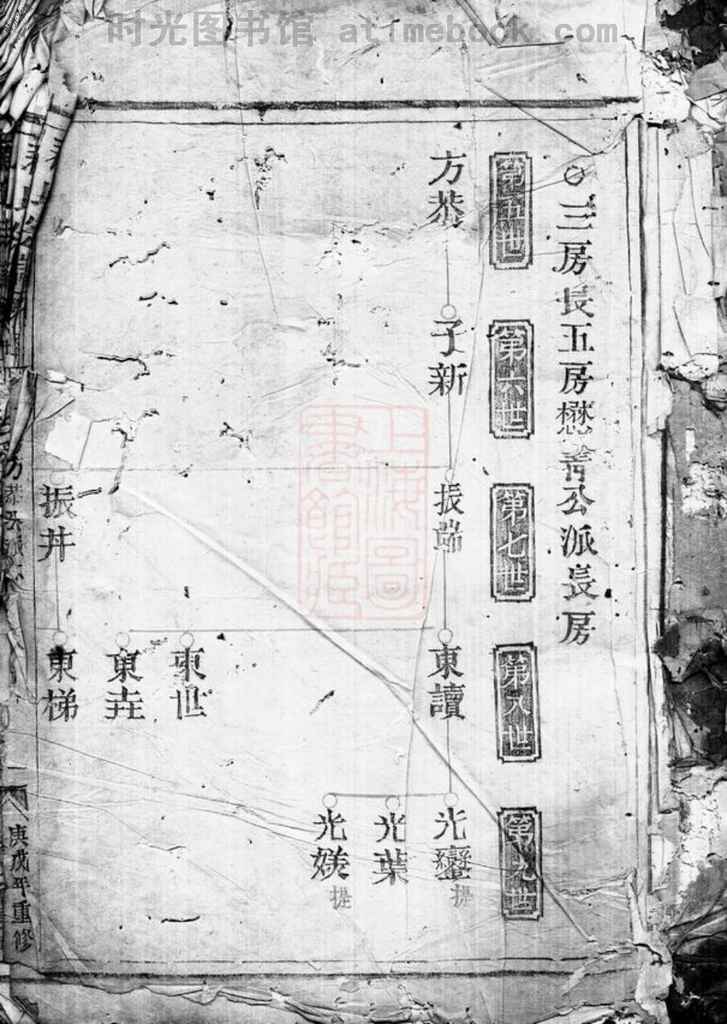 时光图书馆 atimebook.com
三房長五房懋菁公派長房
第五世
第六世
第七世
第八世
第九世
方恭
子新
振端
東讀
光鑾
提
光葉
光媄
提
東世
東壵
振井
東梯
庚戌年重修